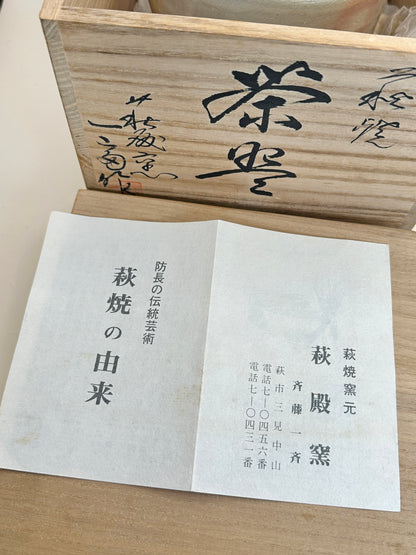 萩焼
茶盌
萩殿窯
防長の伝統芸術
萩焼の由来
萩焼窯元
萩殿窯
斉藤一斉
萩市三見中山
電話七ー〇四五六番
電話七ー〇四三一番